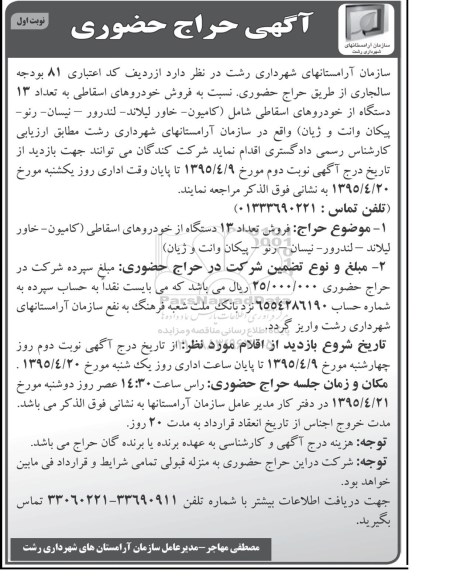 آگهی حراج حضوری
نوبت اول
سازمان آرامستانهای
شهرداری رشت
سازمان آرامستانهای شهرداری رشت در نظر دارد ازردیف کد اعتباری ۸۱ بودجه
سالجاری از طریق حراج حضوری. نسبت به فروش خودروهای اسقاطی به تعداد ۱۳
دستگاه از خودروهای اسقاطی شامل (کامیون- خاور لیلاند- لندرور – نیسان- رنو-
پیکان وانت و ژیان) واقع در سازمان آرامستانهای شهرداری رشت مطابق ارزیابی
کارشناس رسمی دادگستری اقدام نماید شرکت کندگان می توانند جهت بازدید از
تاریخ درج آگهی نوبت دوم مورخ ۱۳۹۵/۴/۹ تا پایان وقت اداری روز یکشنبه مورخ
۱۳۹۵/۴/۲۰ به نشانی فوق الذکر مراجعه نمایند.
(تلفن تماس : ۰۱۳۳۳۶۹۰۲۲۱)
۱- موضوع حراج: فروش تعداد ۱۳ دستگاه از خودروهای اسقاطی (کامیون- خاور
لیلاند – لندرور- نیسان – رنو – پیکان وانت و ژیان)
۲- مبلغ و نوع تضمین شرکت در حراج حضوری: مبلغ سپرده شرکت در
حراج حضوری ۲۵/۰۰۰/۰۰۰ ریال می باشد که می بایست نقداً به حساب سپرده به
شماره حساب ۶۵۵۴۳۸۶۱۹۰ نزد بانک ملت شعبه فرهنگ به نفع سازمان آرامستانهای
شهرداری رشت واریز گردد.
تاریخ شروع بازدید از اقلام مورد نظر: از تاریخ درج آگهی نوبت دوم روز
چهارشنبه مورخ ۱۳۹۵/۴/۹ تا پایان ساعت اداری روز یک شنبه مورخ ۱۳۹۵/۴/۲۰ .
مکان و زمان جلسه حراج حضوری: راس ساعت ۱۴:۳۰ عصر روز دوشنبه مورخ
۱۳۹۵/۴/۲۱ در دفتر کار مدیر عامل سازمان آرامستانها به نشانی فوق الذکر می باشد.
مدت خروج اجناس از تاریخ انعقاد قرارداد به مدت ۲۰ روز.
توجه: هزینه درج آگهی و کارشناسی به عهده برنده یا برنده گان حراج می باشد.
توجه: شرکت دراین حراج حضوری به منزله قبولی تمامی شرایط و قرارداد فی مابین
خواهد بود.
جهت دریافت اطلاعات بیشتر با شماره تلفن ۳۳۶۹۰۹۱۱-۳۳۰۶۰۲۲۱ تماس
بگیرید.
مصطفی مهاجر –مدیرعامل سازمان آرامستان های شهرداری رشت